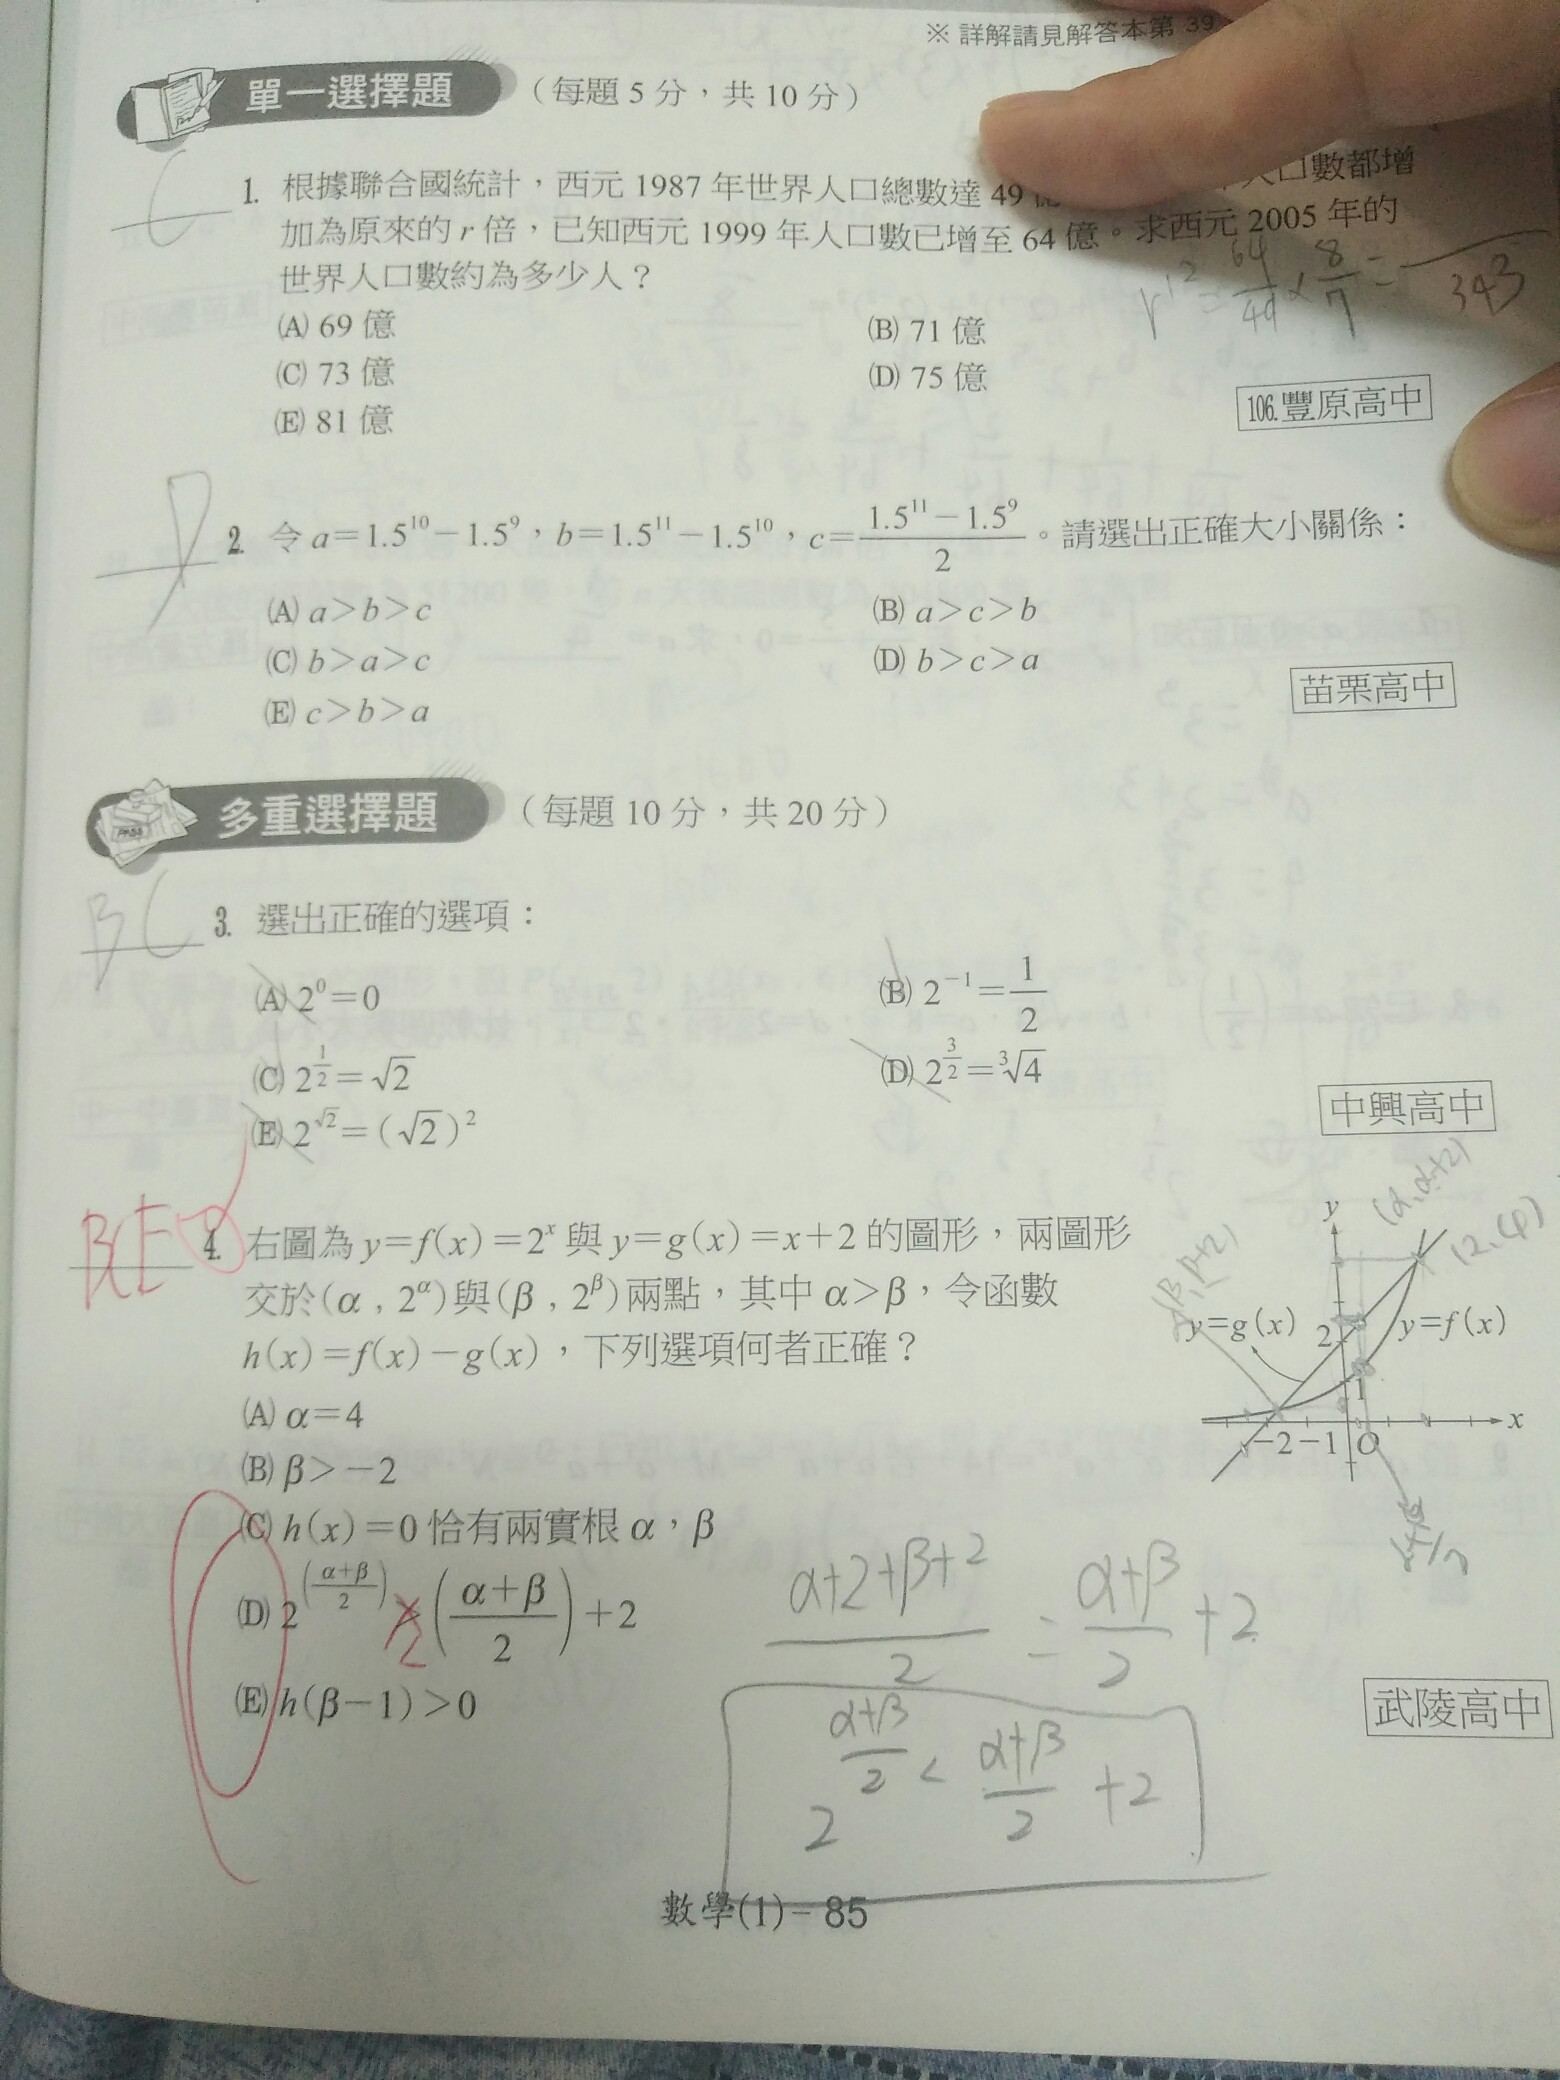 ※ 詳解請見解答本第 39
單一選擇題 （每題 5 分，共 10 分）
C
1. 根據聯合國統計，西元 1987 年世界人口總數達 49 億 人口數都增
加為原來的 r 倍，已知西元 1999 年人口數已增至 64 億。求西元 2005 年的
世界人口數約為多少人？
r¹² = 64/49 × 8/7 = 343
(A) 69 億 (B) 71 億
(C) 73 億 (D) 75 億
(E) 81 億
106.豐原高中
D
2. 令 a＝1.5¹⁰－1.5⁹，b＝1.5¹¹－1.5¹⁰，c＝(1.5¹¹－1.5⁹)/2。請選出正確大小關係：
(A) a＞b＞c (B) a＞c＞b
(C) b＞a＞c (D) b＞c＞a
(E) c＞b＞a
苗栗高中
多重選擇題 （每題 10 分，共 20 分）
BC
3. 選出正確的選項：
(A) 2⁰＝0 (B) 2⁻¹＝1/2
(C) 2^(1/2)＝√2 (D) 2^(3/2)＝³√4
(E) 2^√2＝(√2)²
中興高中
BCE
4. 右圖為 y＝f(x)＝2ˣ 與 y＝g(x)＝x＋2 的圖形，兩圖形
交於(α , 2^α)與(β , 2^β)兩點，其中 α＞β，令函數
h(x)＝f(x)－g(x)，下列選項何者正確？
(A) α＝4
(B) β＞－2
(C) h(x)＝0 恰有兩實根 α，β
(D) 2^((α＋β)/2) ((α＋β)/2)＋2
(E) h(β－1)＞0
y
(α, α+2)
(2, 4)
(β, β+2)
y=g(x)
2
y=f(x)
1
－2 －1 O
x
(α+2+β+2)/2 = (α+β)/2 +2
2^((α+β)/2) < (α+β)/2 +2
武陵高中
數學(1)－85